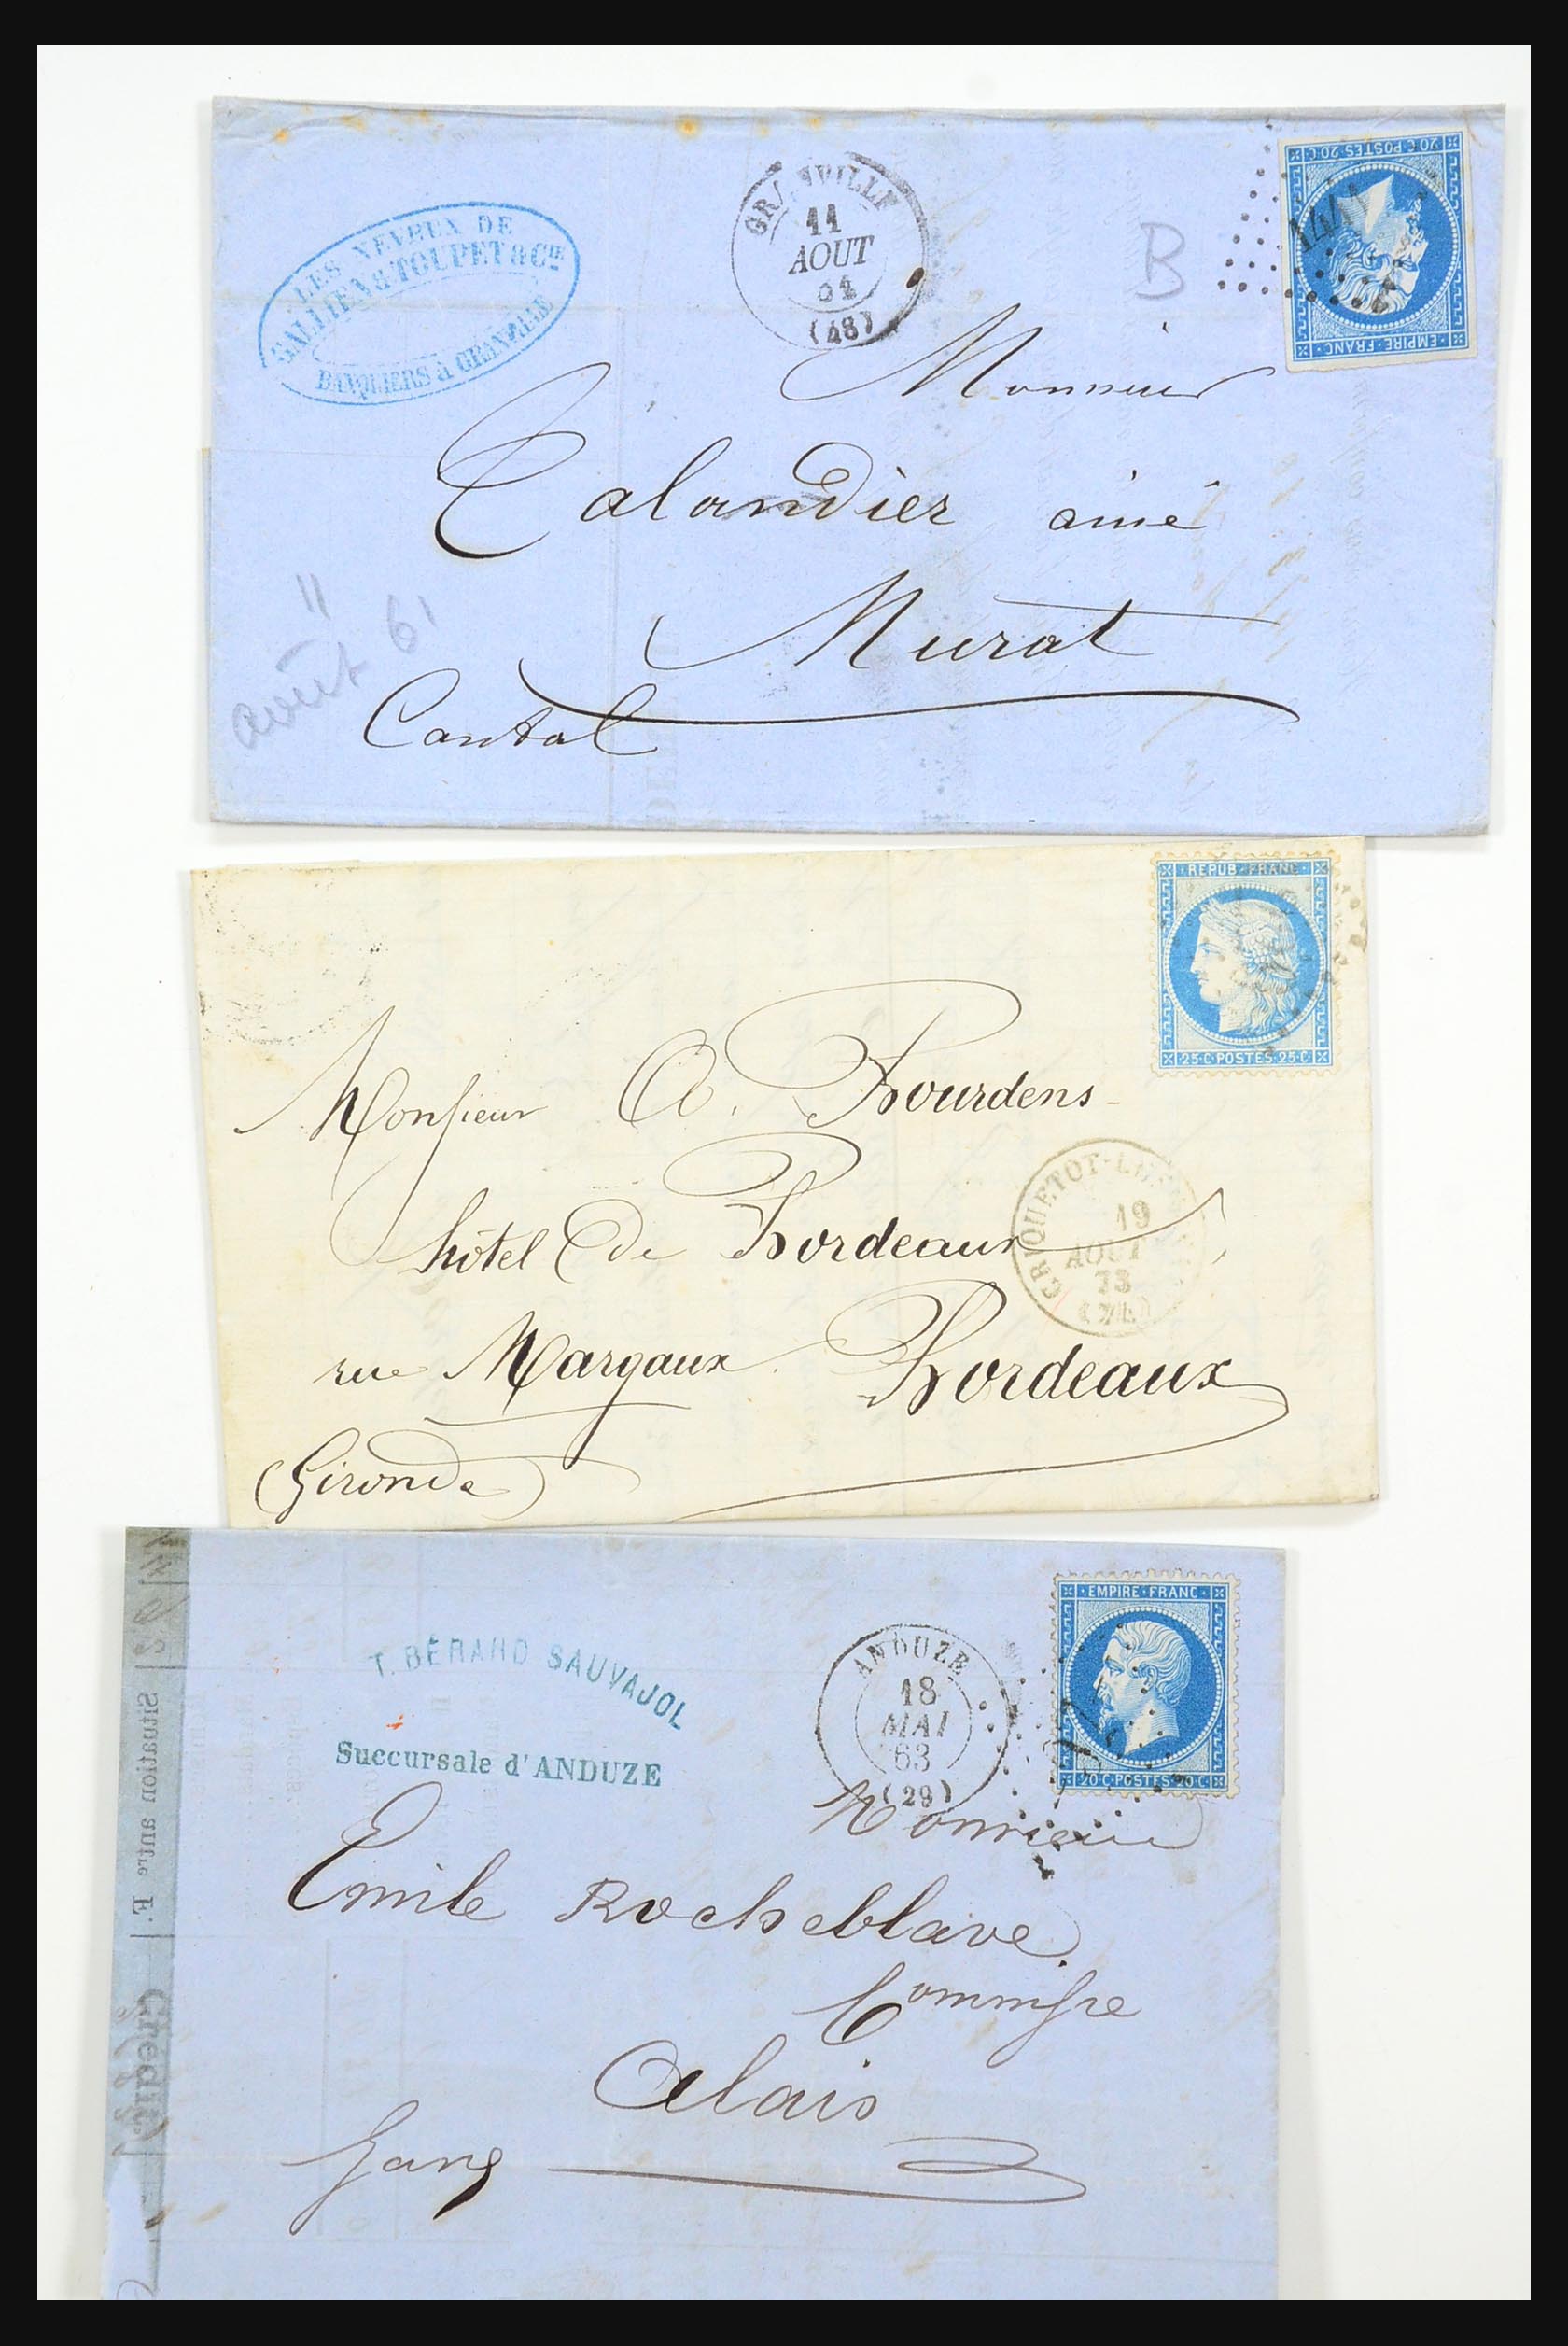 LES NEVEUX DE
GALLIEN & TOUPET & Cie
BANQUIERS à GRANVILLE
GRANVILLE
11
AOUT
61
(48)
B
20 C POSTES 20 C
1441
EMPIRE FRANC
Monsieur
Calandier ainé
Murat
Cantal
11
août 61
REPUB FRANC
25 C POSTES 25 C
Monsieur A. Bourdens
hôtel de Bordeaux
CRIQUETOT-L
19
AOUT
73
(74)
rue Margaux Bordeaux
(Gironde)
EMPIRE FRANC
20 C POSTES 20 C
T. BÉRARD SAUVAJOL
Succursale d'ANDUZE
ANDUZE
18
MAI
63
(29)
Monsieur
Emile Rocheblave
Alais
Gard
Situation antre F.
Crédit